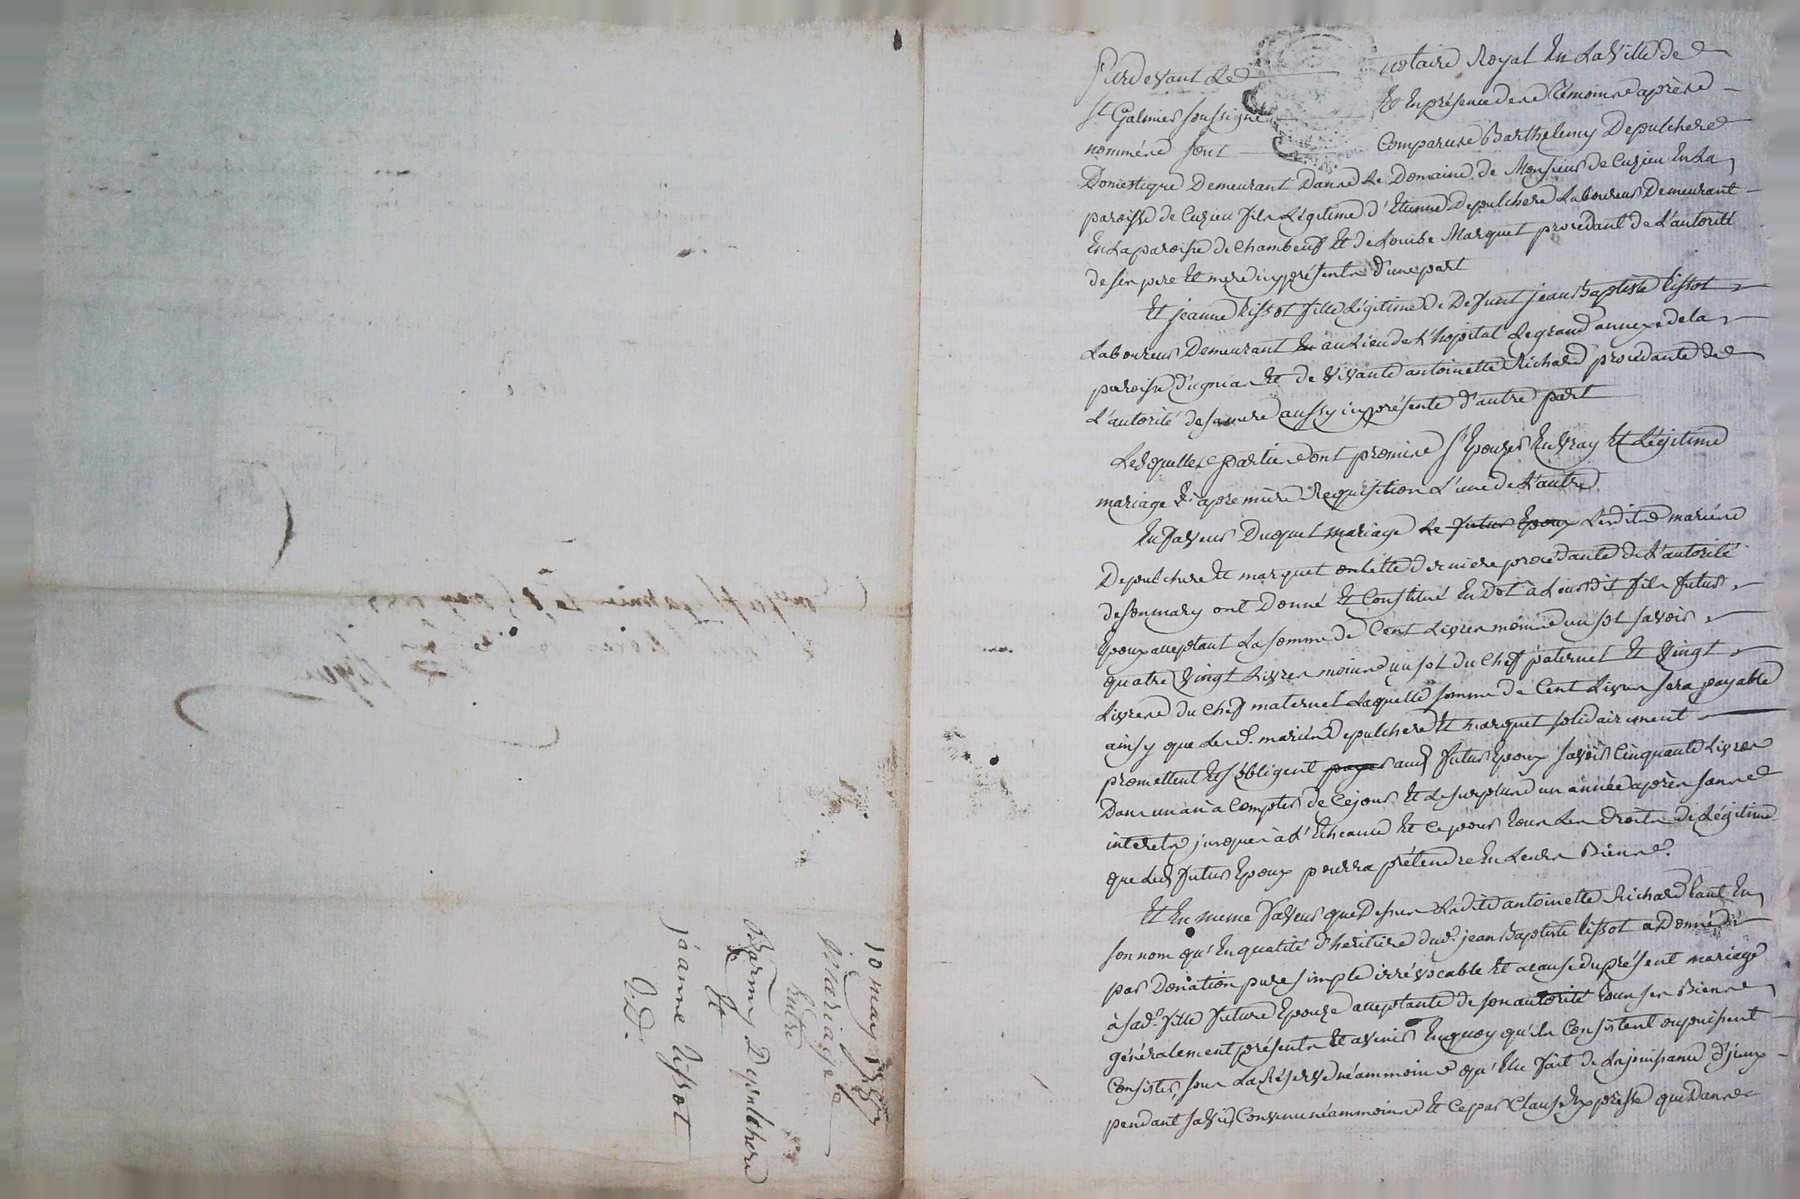 10 may
Mariage
Entre
Barmy Depulchere
Et
jeanne tissot
Pardevant Le notaire Royal En La Ville de
St Galmier soussigné Et En présence des témoins après
nommés sont Comparus Barthelemy Depulchere
Domestique Demeurant Dans Le Domaine de Monsieur de Cuzieu En La
paroisse de Cuzieu fils Légitime d'Etienne Depulchere Laboureur Demeurant
En La paroisse de Chambeuf Et de Louise Marquet procedant de L'autorité
de ses pere Et mere icy présents d'une part
Et jeanne tissot fille Légitime de Defunt jean Baptiste tissot
Laboureur Demeurant En au Lieu de L'hopital Le grand annexe de la
paroisse d'ugnias Et de Vivante antoinette Richard procedante de
L'autorité de sa mere aussy icy présente d'autre part
Lesquelles parties ont promis s'Epouzer En Vray Et Légitime
mariage à première Requisition L'une de L'autre
En faveur Duquel mariage Le futur Epoux Lesdits mariés
Depulchere Et marquet cette derniere procédante de L'autorité
de son mary ont Donné Et Constitué En Dot à Leurdit fils futur
Epoux acceptant La somme de Cent Livres moins un sol savoir
quatre Vingt Livres moins un sol du Chef paternel Et Vingt
Livres du Chef maternel Laquelle somme de Cent Livres sera payable
ainsy que Lesd. mariés Depulchere Et marquet solidairement
promettent Et s'obligent payer aud futur Epoux savoir Cinquante Livres
Dans un an à Compter de Ce jour Et Le surplus un année après sans
interets jusques à L'Echeance Et Ce pour tous Les droits de Légitime
que Led futur Epoux pourra prétendre En Leurs Biens.
Et En meme faveur que Dessus Ladite antoinette Richard tant En
son nom qu'En qualité d'heritiere dud. jean Baptiste tissot a Donné
par Donation pure simple irrévocable Et a cause du présent mariage
à sad. fille future Epouze acceptante de son autorité tous ses Biens
généralement présents Et avenir En quoy qu'ils Consistent ou puissent
Consister, sous La Réserve néammoins qu'Elle fait de La jouissance d'jceux
pendant sa Vie Convenu néammoins Et Ce par Clause Expresse que Dans